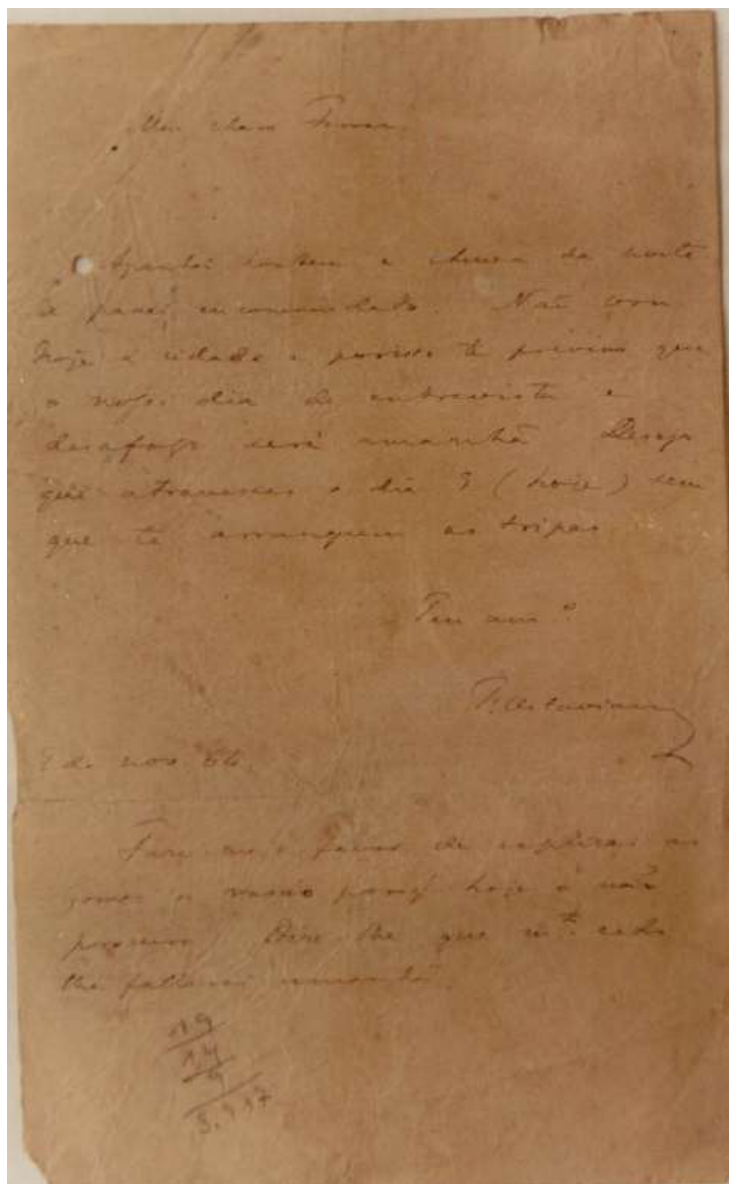 Meu charo
Apanhei hontem a chuva da noite
e passei incommodado. Não vou
hoje á cidade e por isso te previno que
o nosso dia de entrevista e
desafogo será amanhã Desejo
que atravesses o dia 9 (hoje) sem
que te arranquem as tripas
Teu am.º
F. Octaviano
9 de nov 66.
Faze me o favor de explicar ao
Gomes a razão porq' hoje o não
procuro. Dize lhe que m.to cedo
lhe fallarei amanhã.
19
14
9
3.1.17